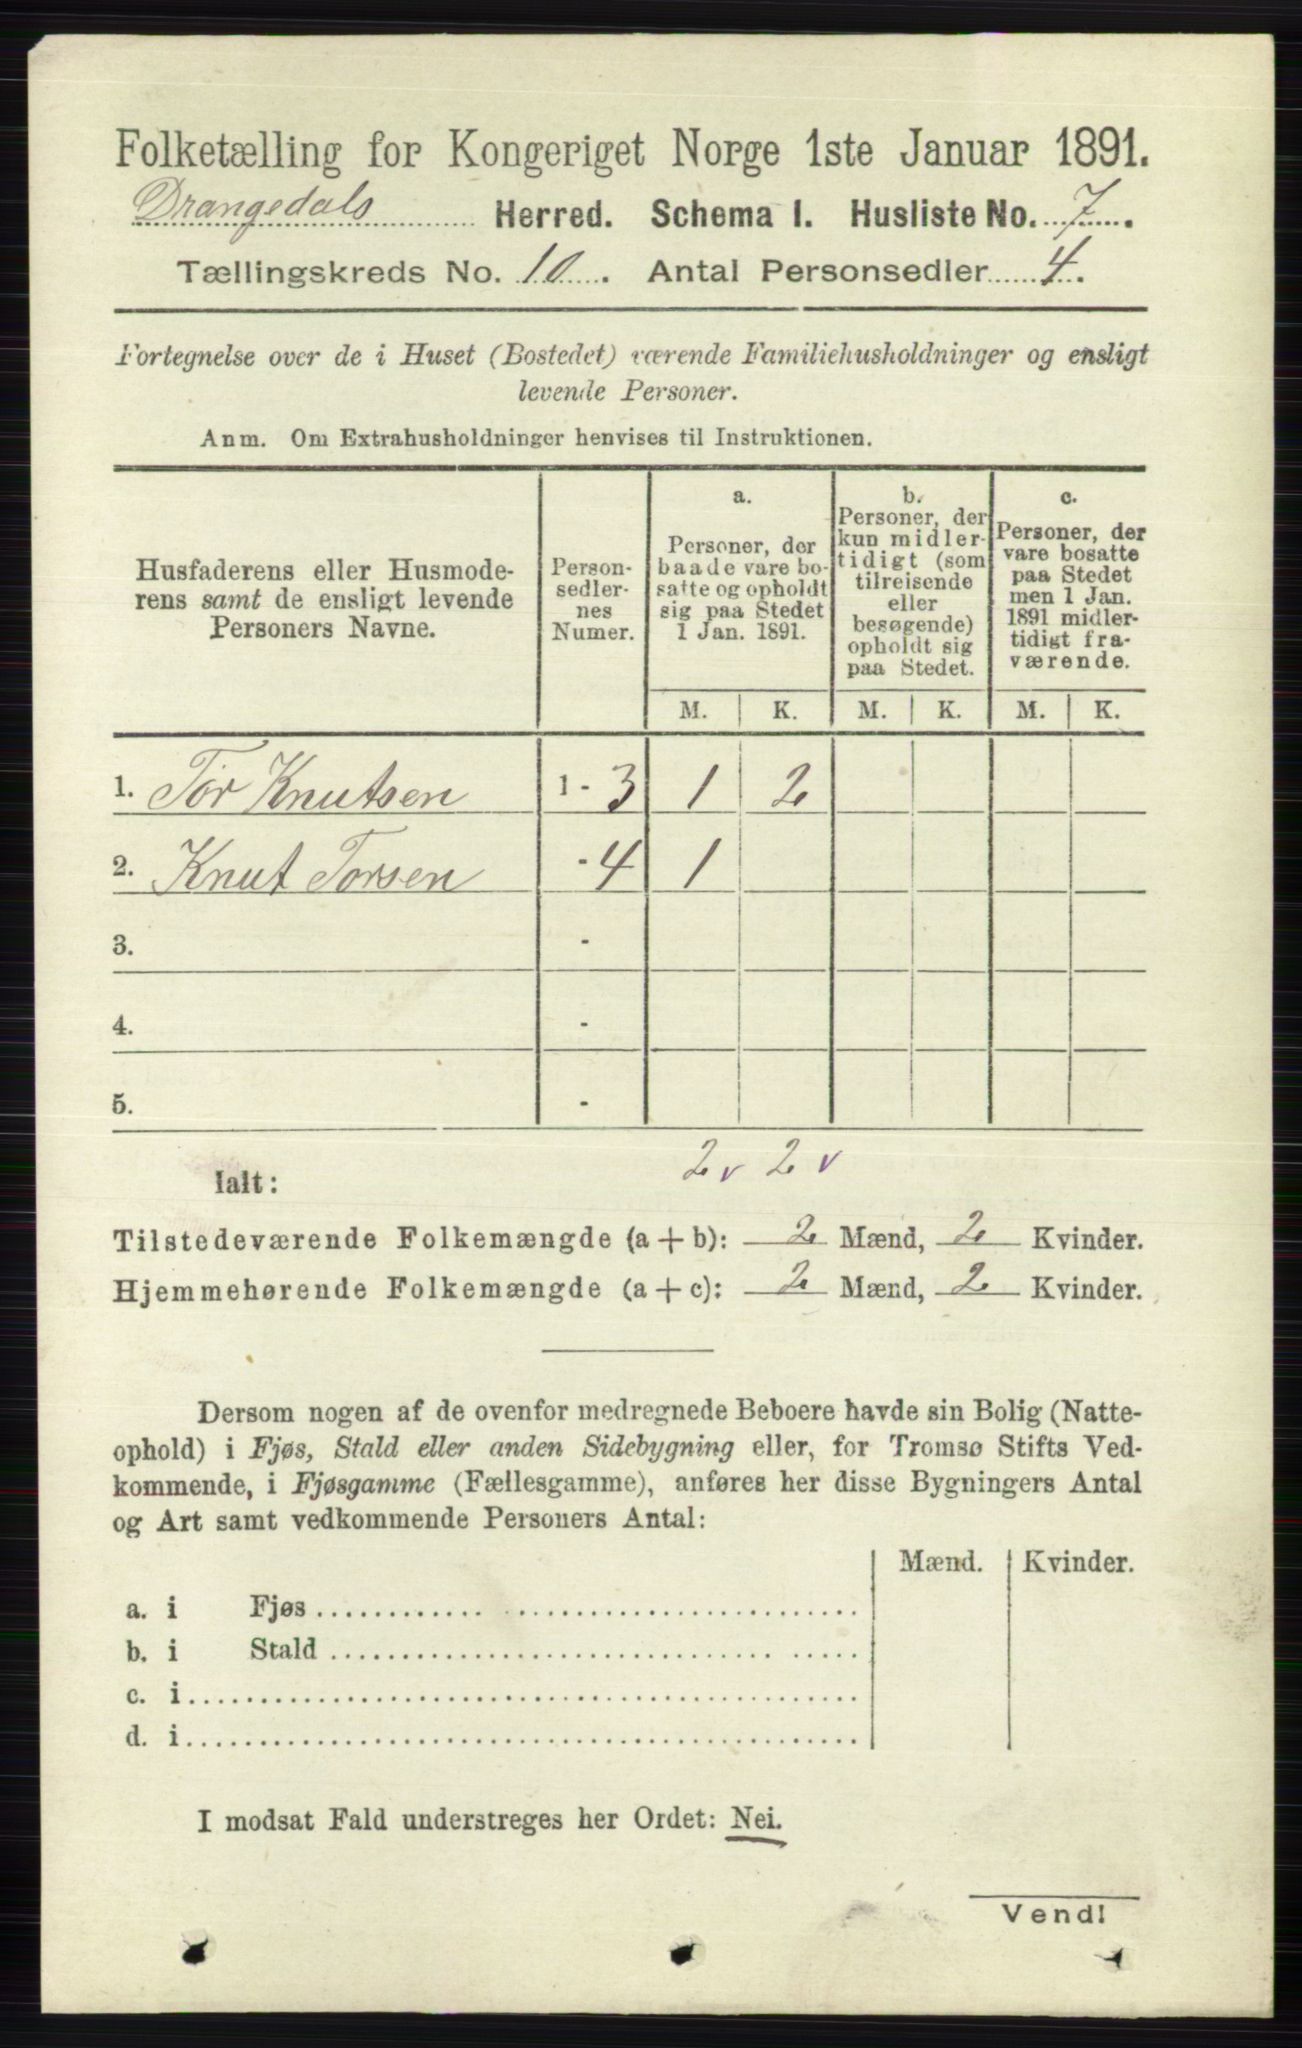 Folketælling for Kongeriget Norge 1ste Januar 1891.
Drangedals Herred. Schema I. Husliste No. 7.
Tællingskreds No. 10. Antal Personsedler 4.
Fortegnelse over de i Huset (Bostedet) værende Familiehusholdninger og ensligt
levende Personer.
Anm. Om Extrahusholdninger henvises til Instruktionen.
Husfaderens eller Husmode-
rens samt de ensligt levende
Personers Navne.
Person-
sedler-
nes
Numer.
a.
Personer, der
baade vare bo-
satte og opholdt
sig paa Stedet
1 Jan. 1891.
b.
Personer, der
kun midler-
tidigt (som
tilreisende
eller
besøgende)
opholdt sig
paa Stedet.
c.
Personer, der
vare bosatte
paa Stedet
men 1 Jan.
1891 midler-
tidigt fra-
værende.
M. K. M. K. M. K.
1. Tor Knutsen 1 - 3 1 2
2. Knut Torsen - 4 1
3. -
4. -
5. -
2 v 2 v
Ialt:
Tilstedeværende Folkemængde (a + b): 2 Mænd, 2 Kvinder.
Hjemmehørende Folkemængde (a + c): 2 Mænd, 2 Kvinder.
Dersom nogen af de ovenfor medregnede Beboere havde sin Bolig (Natte-
ophold) i Fjøs, Stald eller anden Sidebygning eller, for Tromsø Stifts Ved-
kommende, i Fjøsgamme (Fællesgamme), anføres her disse Bygningers Antal
og Art samt vedkommende Personers Antal:
Mænd. Kvinder.
a. i Fjøs
b. i Stald
c. i
d. i
I modsat Fald understreges her Ordet: Nei.
Vend!